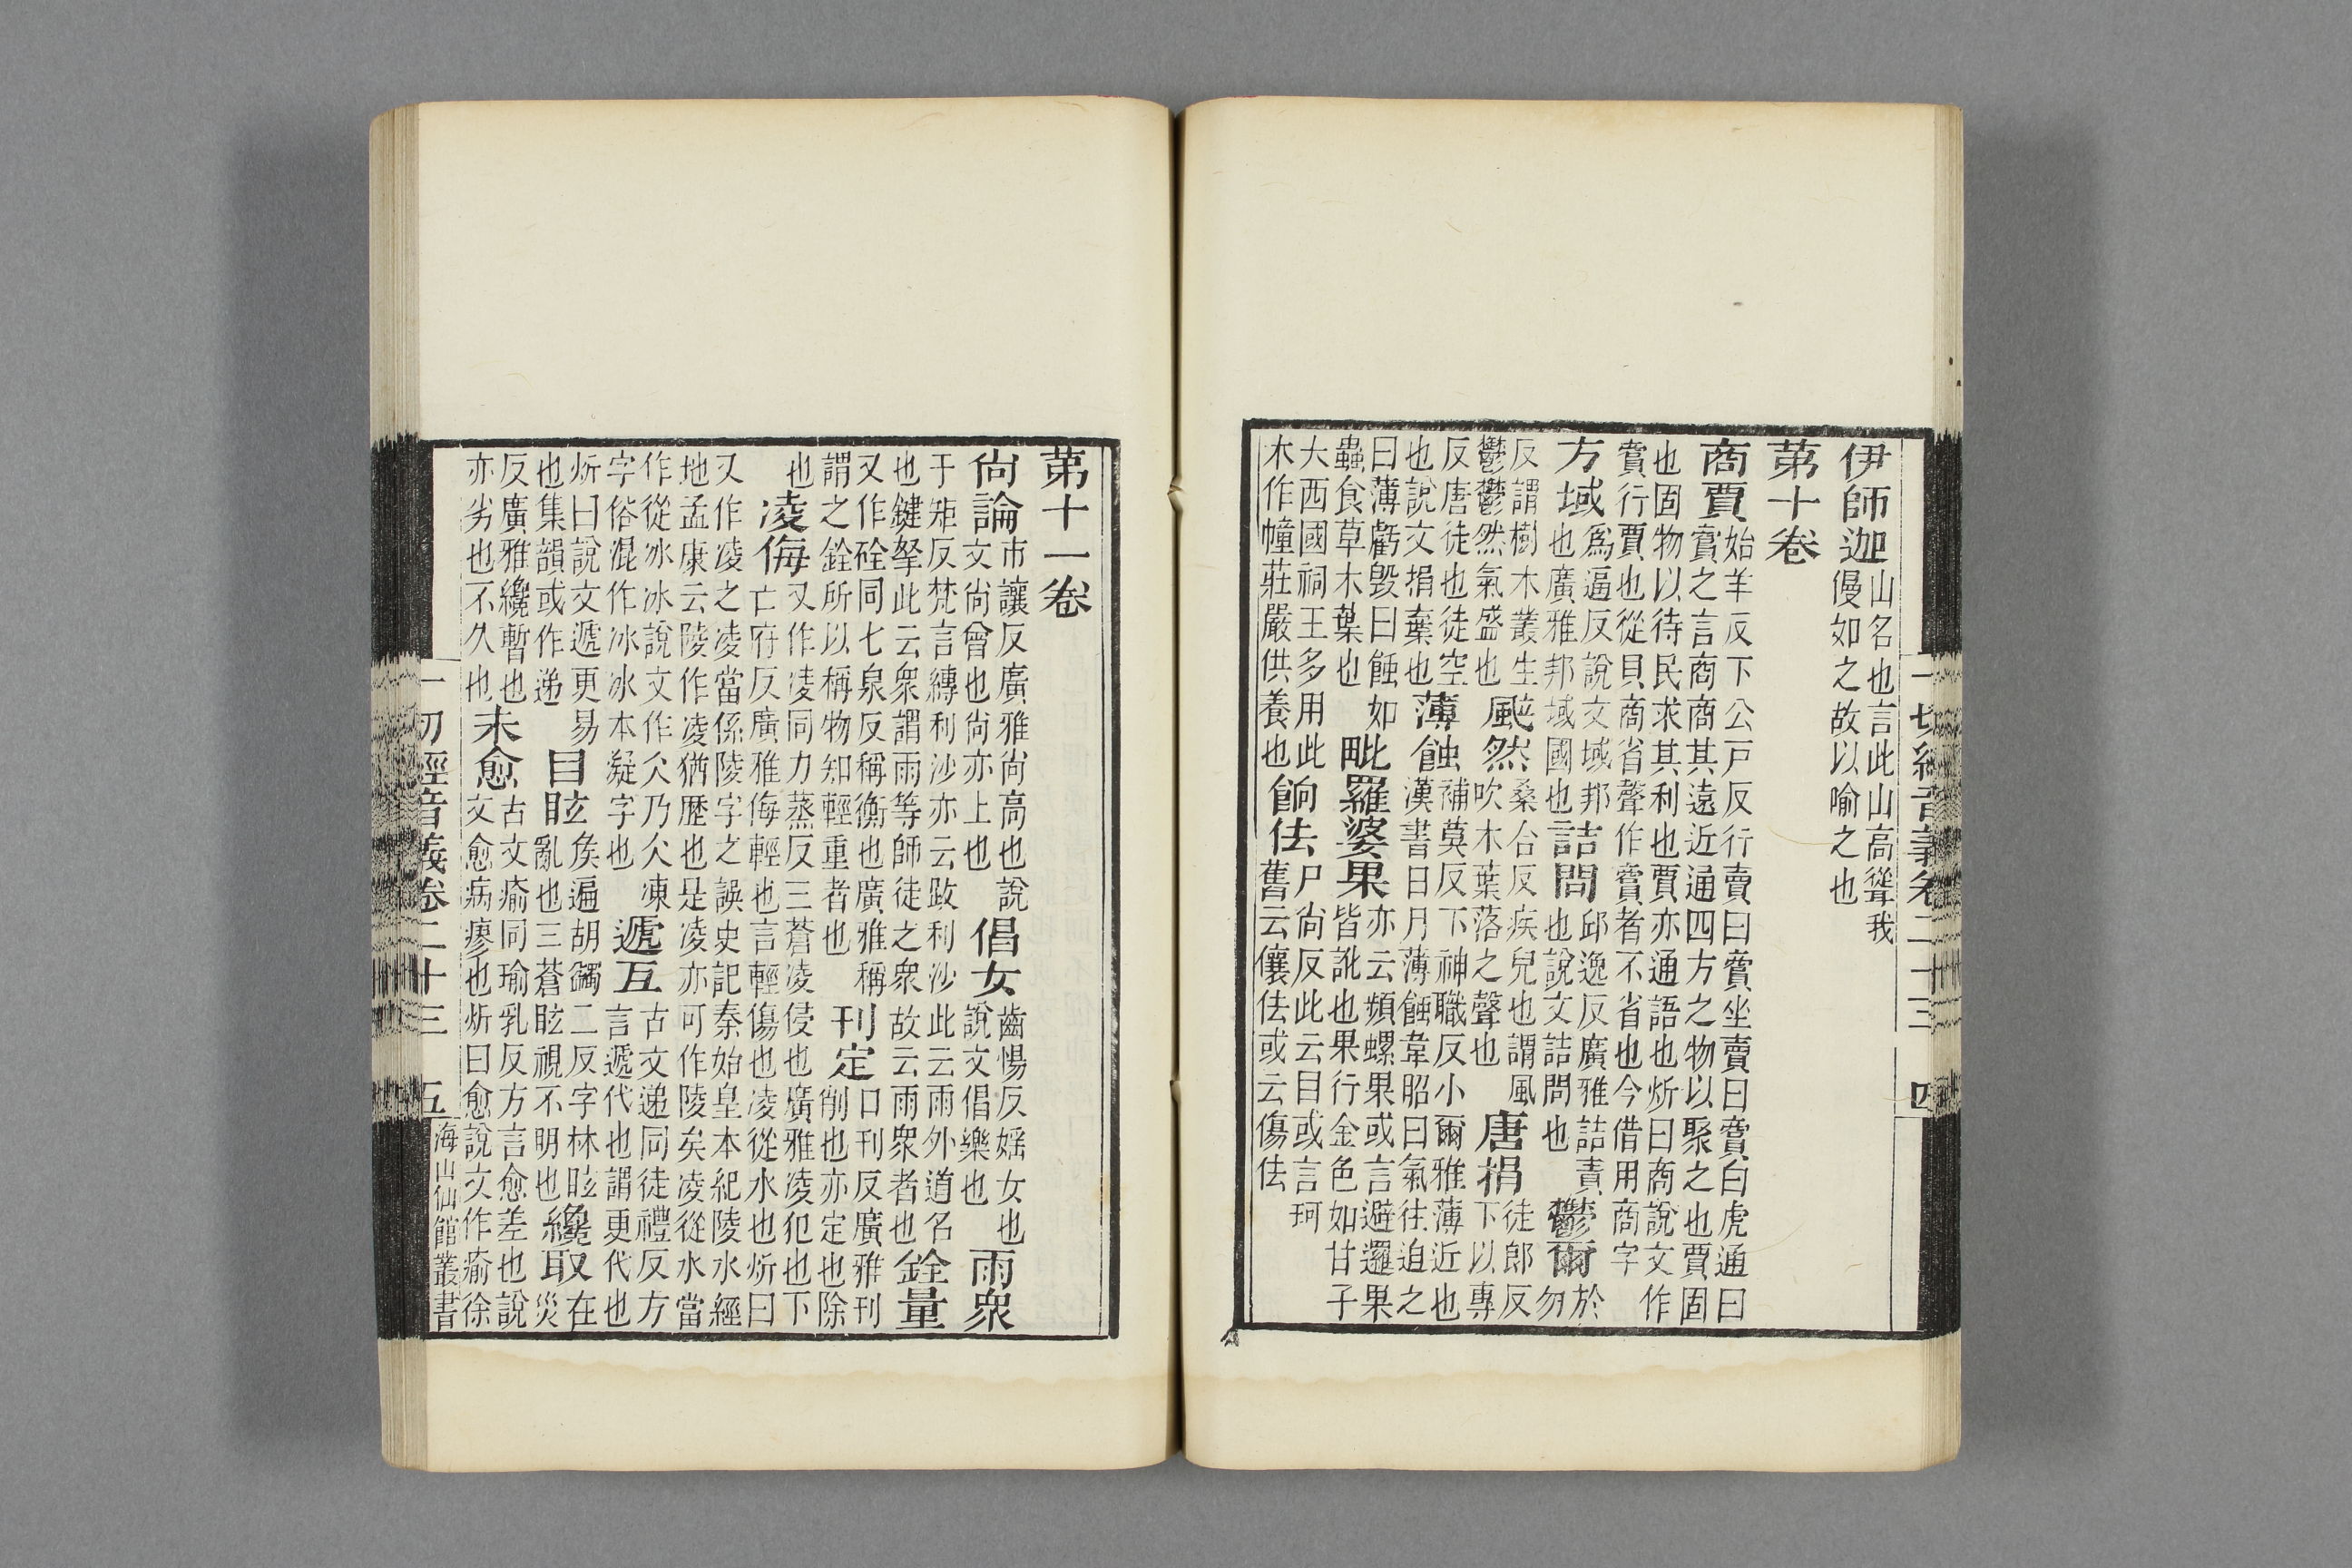 一切經音義卷二十三 四
伊師迦山名也言此山高聳我
慢如之故以喻之也
第十卷
商賈始羊反下公戸反行賣曰賣坐賣曰賣白虎通曰
賣之言商商其遠近通四方之物以聚之也賈固
也固物以待民求其利也賈亦通語也炘曰商說文作
賣行賈也從貝商省聲作賣者不省也今借用商字
方域爲逼反說文域邦
也廣雅邦域國也詰問邱逸反廣雅詰責
也說文詰問也鬱爾於
勿
反謂樹木叢生
鬱鬱然氣盛也颯然桑合反疾皃也謂風
吹木葉落之聲也唐捐徒郎反
下以專
反唐徒也徒空
也說文捐棄也薄蝕補莫反下神職反小爾雅薄近也
漢書日月薄蝕韋昭曰氣往迫之
曰薄虧毁曰蝕如
蟲食草木葉也毗羅婆果亦云頻螺果或言避邏果
皆訛也果行金色如甘子
大西國祠王多用此
木作幢莊嚴供養也餉佉尸尙反此云目或言珂
舊云儴佉或云傷佉
第十一卷
尙論市讓反廣雅尙高也說
文尙曾也尙亦上也倡女齒惕反婬女也
說文倡樂也雨衆
于矩反梵言縳利沙亦云跋利沙此云雨外道名
也鍵拏此云衆謂雨等師徒之衆故云雨衆者也銓量
又作硂同七泉反稱衡也廣雅稱
謂之銓所以稱物知輕重者也刊定口刊反廣雅刊
削也亦定也除
也凌侮又作凌同力蒸反三蒼凌侵也廣雅凌犯也下
亡府反廣雅侮輕也言輕傷也凌從水也炘曰
又作凌之凌當係陵字之誤史記秦始皇本紀陵水經
地孟康云陵作凌猶歴也是凌亦可作陵矣凌從水當
作從冰冰說文作仌乃仌凍
字俗混作冰冰本凝字也遞互古文递同徒禮反方
言遞代也謂更代也
炘曰說文遞更易
也集韻或作递目眩侯遍胡蠲二反字林眩
亂也三蒼眩視不明也纔取在
災
反廣雅纔暫也
亦劣也不久也未愈古文瘉同瑜乳反方言愈差也說
文愈病瘳也炘曰愈說文作瘉徐
一切經音義卷二十三 五 海山仙館叢書